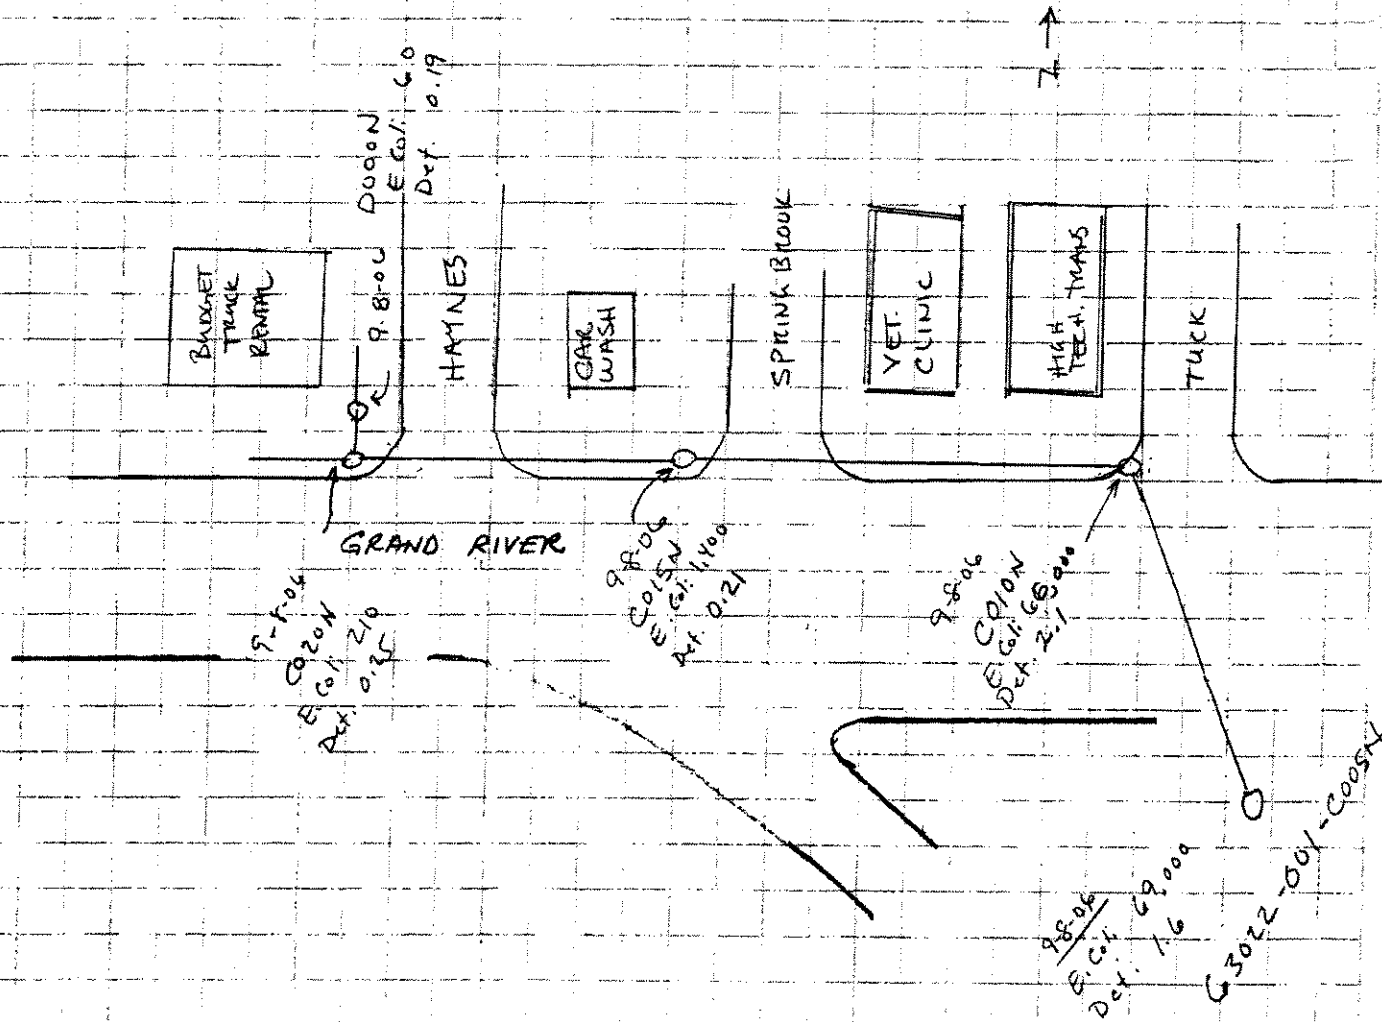 N
D000N
E Coli 6.0
Det. 0.19
9.8.06
BUDGET
TRUCK
RENTAL
HAYNES
CAR
WASH
SPRING BROOK
VET.
CLINIC
HIGH
TECH. TRANS
TUCK
GRAND RIVER
9-8-06
C020N
E. Coli 210
Det. 0.25
9-8-06
C015N
E. Coli 1,400
Det. 0.21
9-8-06
C010N
E. Coli
Det. 2.1
9-8-06
E. Coli 69,000
Det. 1.6
G3022-001-C005N